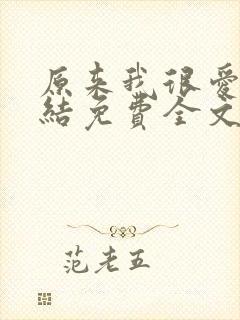 原来我很爱
結免費全文
范老五